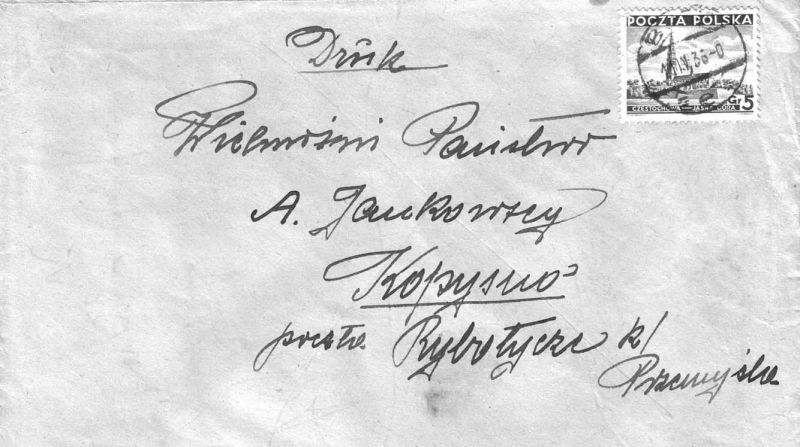 Druk
POCZTA POLSKA
CZĘSTOCHOWA — JASNA GÓRA
Gr 5
Wielmożni Państwo
A. Jankowscy
Kopysno
poczta Rybotycze k/
Przemyśla